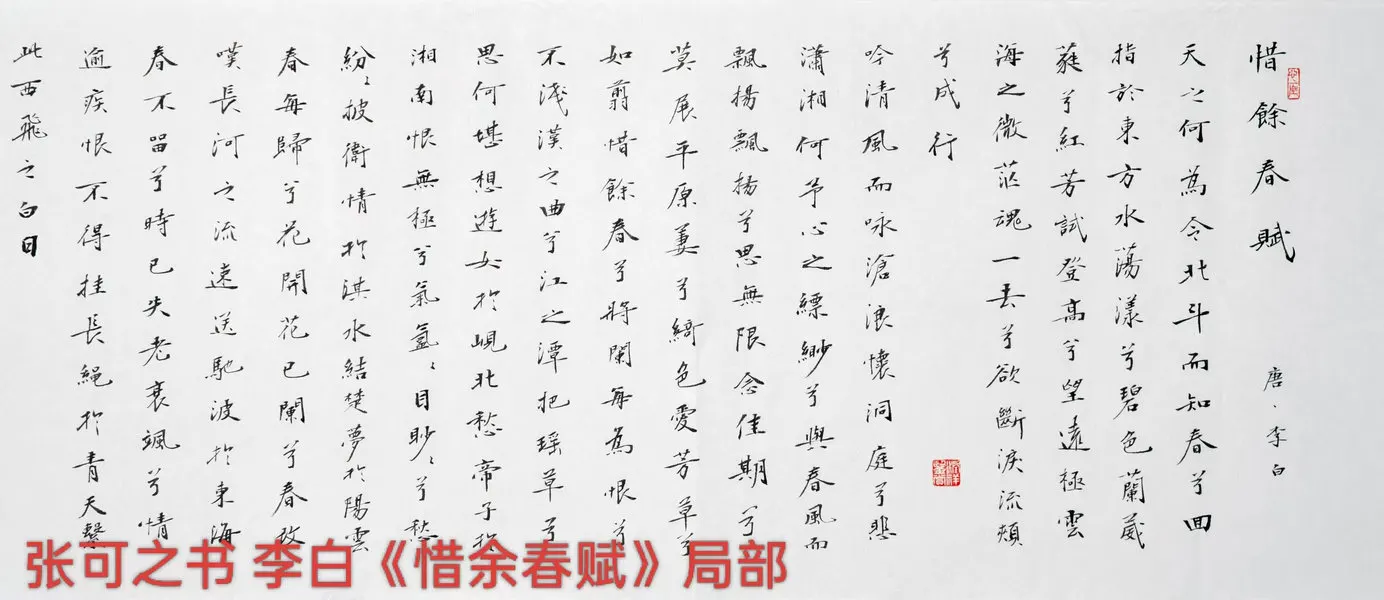 惜餘春賦
唐、李白
天之何為令北斗而知春兮回
指於東方水蕩漾兮碧色蘭葳
蕤兮紅芳試登高兮望遠極雲
海之微茫魂一去兮欲斷淚流頰
兮成行
吟清風而咏滄浪懷洞庭兮悲
瀟湘何予心之縹緲兮與春風而
飄揚飄揚兮思無限念佳期兮
莫展平原萋兮綺色愛芳草兮
如翦惜餘春兮將闌每為恨兮
不淺漢之曲兮江之潭把瑤草兮
思何堪想遊女於峴北愁帝子於
湘南恨無極兮氣氳、目眇、兮愁
紛、披衛情於淇水結楚夢於陽雲
春每歸兮花開花已闌兮春改
嘆長河之流速送馳波於東海
春不留兮時已失老衰颯兮情
逾疾恨不得挂長繩於青天繫
此西飛之白日
张可之书 李白《惜余春赋》局部